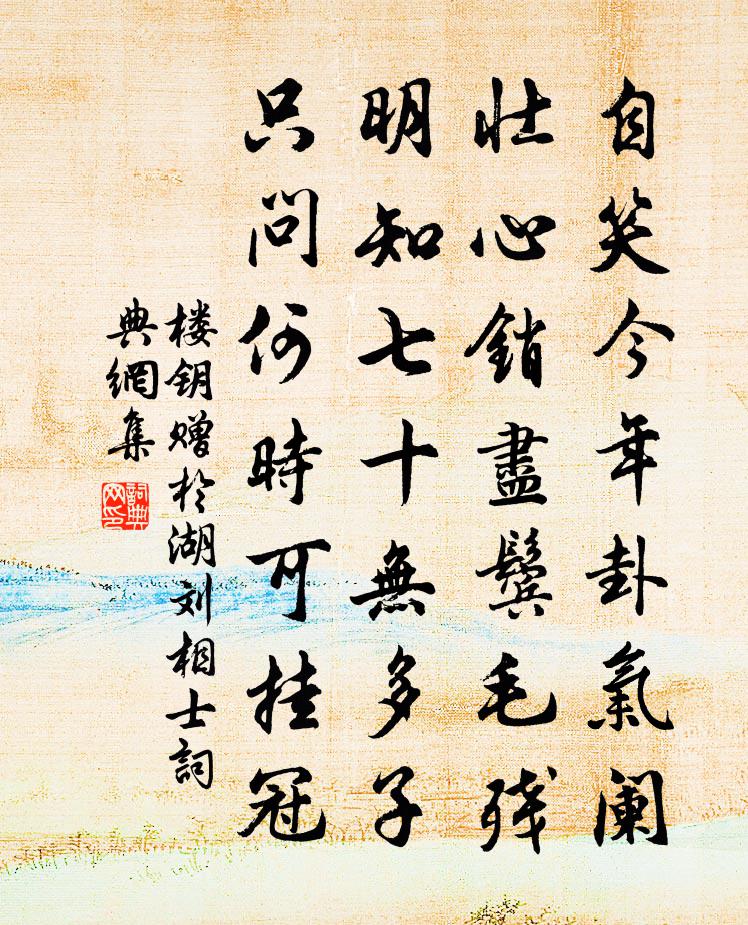 自笑今年卦氣阑
壮心銷盡鬓毛残
明知七十無多子
只問何時可挂冠
楼钥赠於湖刘相士詞
典網集
詞典网印